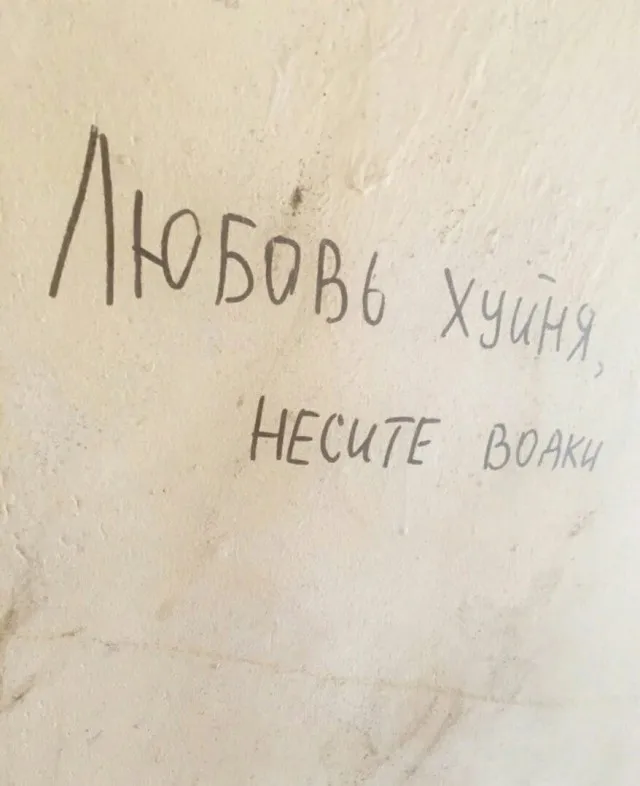 Любовь хуйня,
несите водки